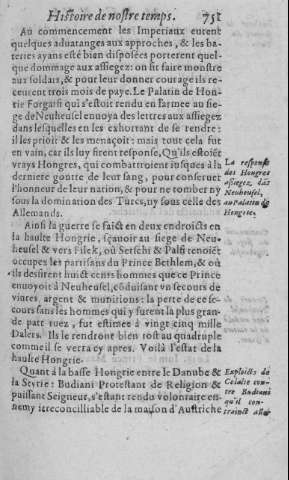 Histoire de nostre temps. 751
Au commencement les Imperiaux eurent
quelques aduatanges aux approches, & les ba-
teries ayans esté bien disposées porterent quel-
que dommage aux assiegez: on fit faire monstre
aux soldats, & pour leur donner courage ils re-
ceurent trois mois de paye. Le Palatin de Hon-
trie Forgatsi qui s'estoit rendu en l'armee au sie-
ge de Neuheusel enuoya des lettres aux assiegez
dans lesquelles en les exhortant de se rendre:
il les prioit & les menaçoit: mais tout cela fut
en vain, car ils luy firent response, Qu'ils estoiēt
vrays Hongres, qui combattroient iusques à la
derniere goutte de leur sang, pour conseruer
l'honneur de leur nation, & pour ne tomber ny
sous la domination des Turcs, ny sous celle des
Allemands.
La response
des Hongres
assiegez dās
Neuheusel,
au Palatin de
Hongrie.
Ainsi la guerre se faict en deux endroicts en
la haulte Hongrie, sçauoir au siege de Neu-
heusel & vers Filek, où Setschi & Palfi tenoiēt
occupes les partisans du Prince Bethlem, & où
ils desirent huict cents hommes que ce Prince
enuoyoit à Neuheusel, cōduisant vn secours de
viures, argent & munitions: la perte de ce se-
cours sans les hommes qui y furent la plus gran-
de part tuez, fut estimee à vingt cinq mille
Dalers. Ils le rendront bien tost au quadruple
comme il se verra cy apres. Voilà l'estat de la
haulte Hongrie.
Quant à la basse Hongrie entre le Danube &
la Styrie: Budiani Protestant de Religion &
puissant Seigneur, s'estant rendu volontaire en-
nemy irreconcilliable de la maison d'Austriche
Exploicts de
Colalte con-
tre Budiani
qu'il con-
trainct